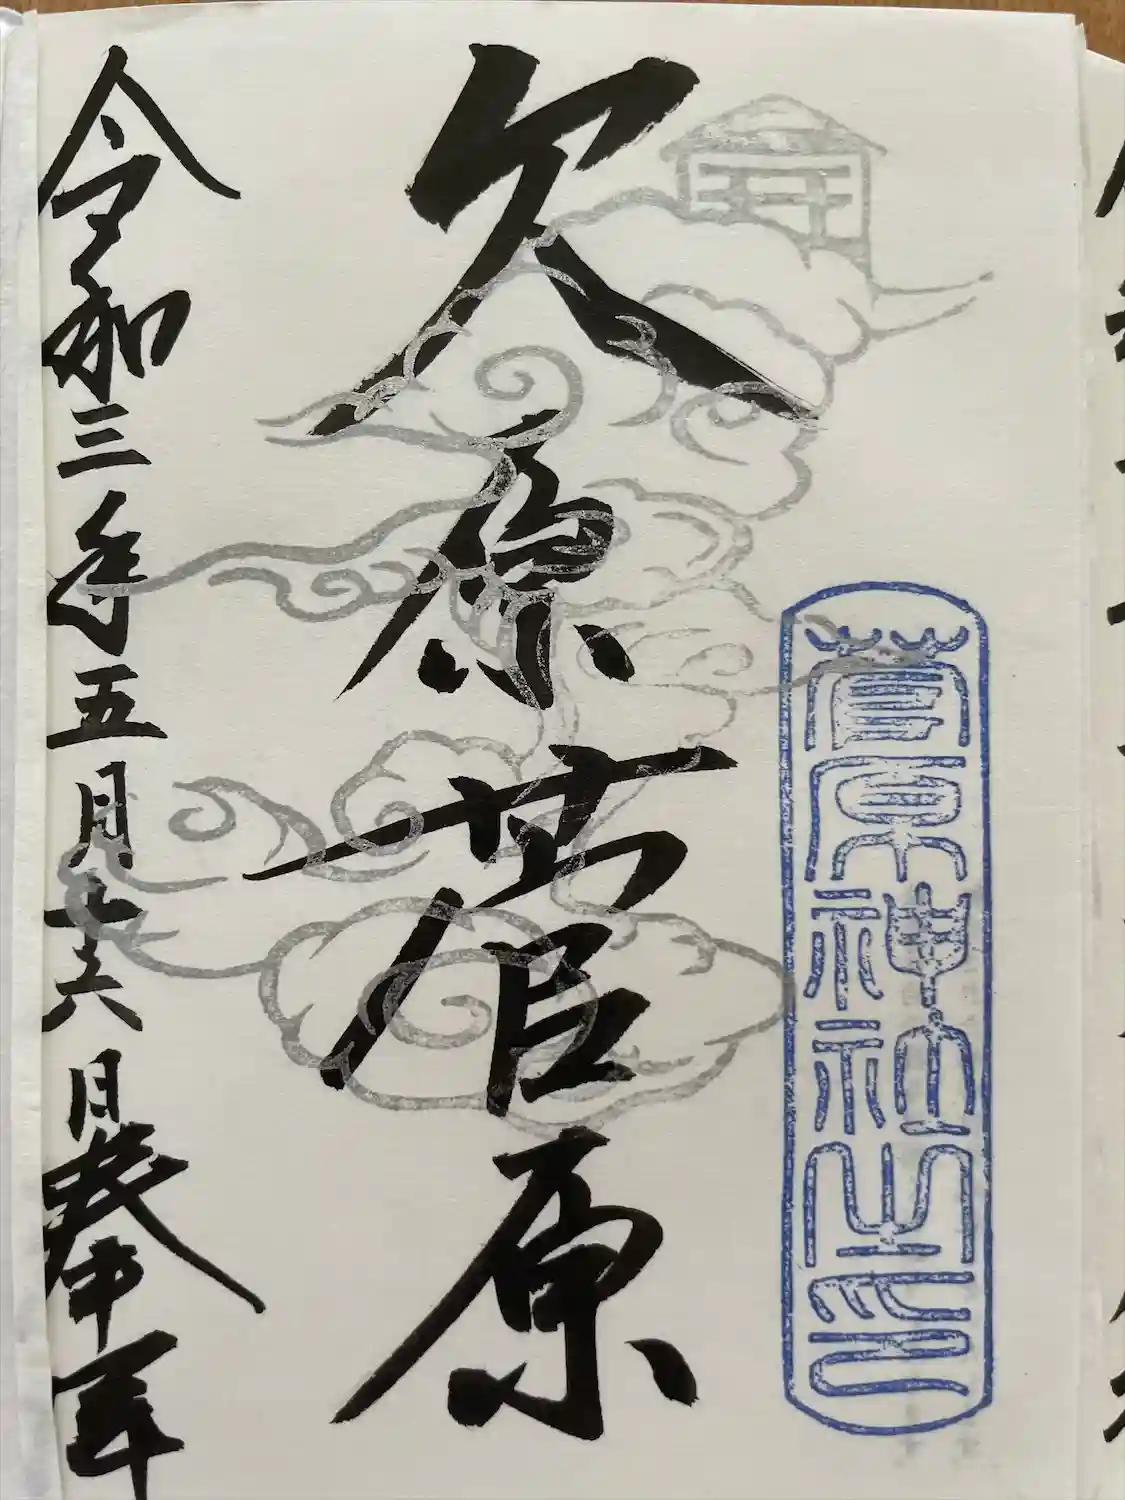 菅原神社之印
久原菅原
令和三年五月十六日奉拝